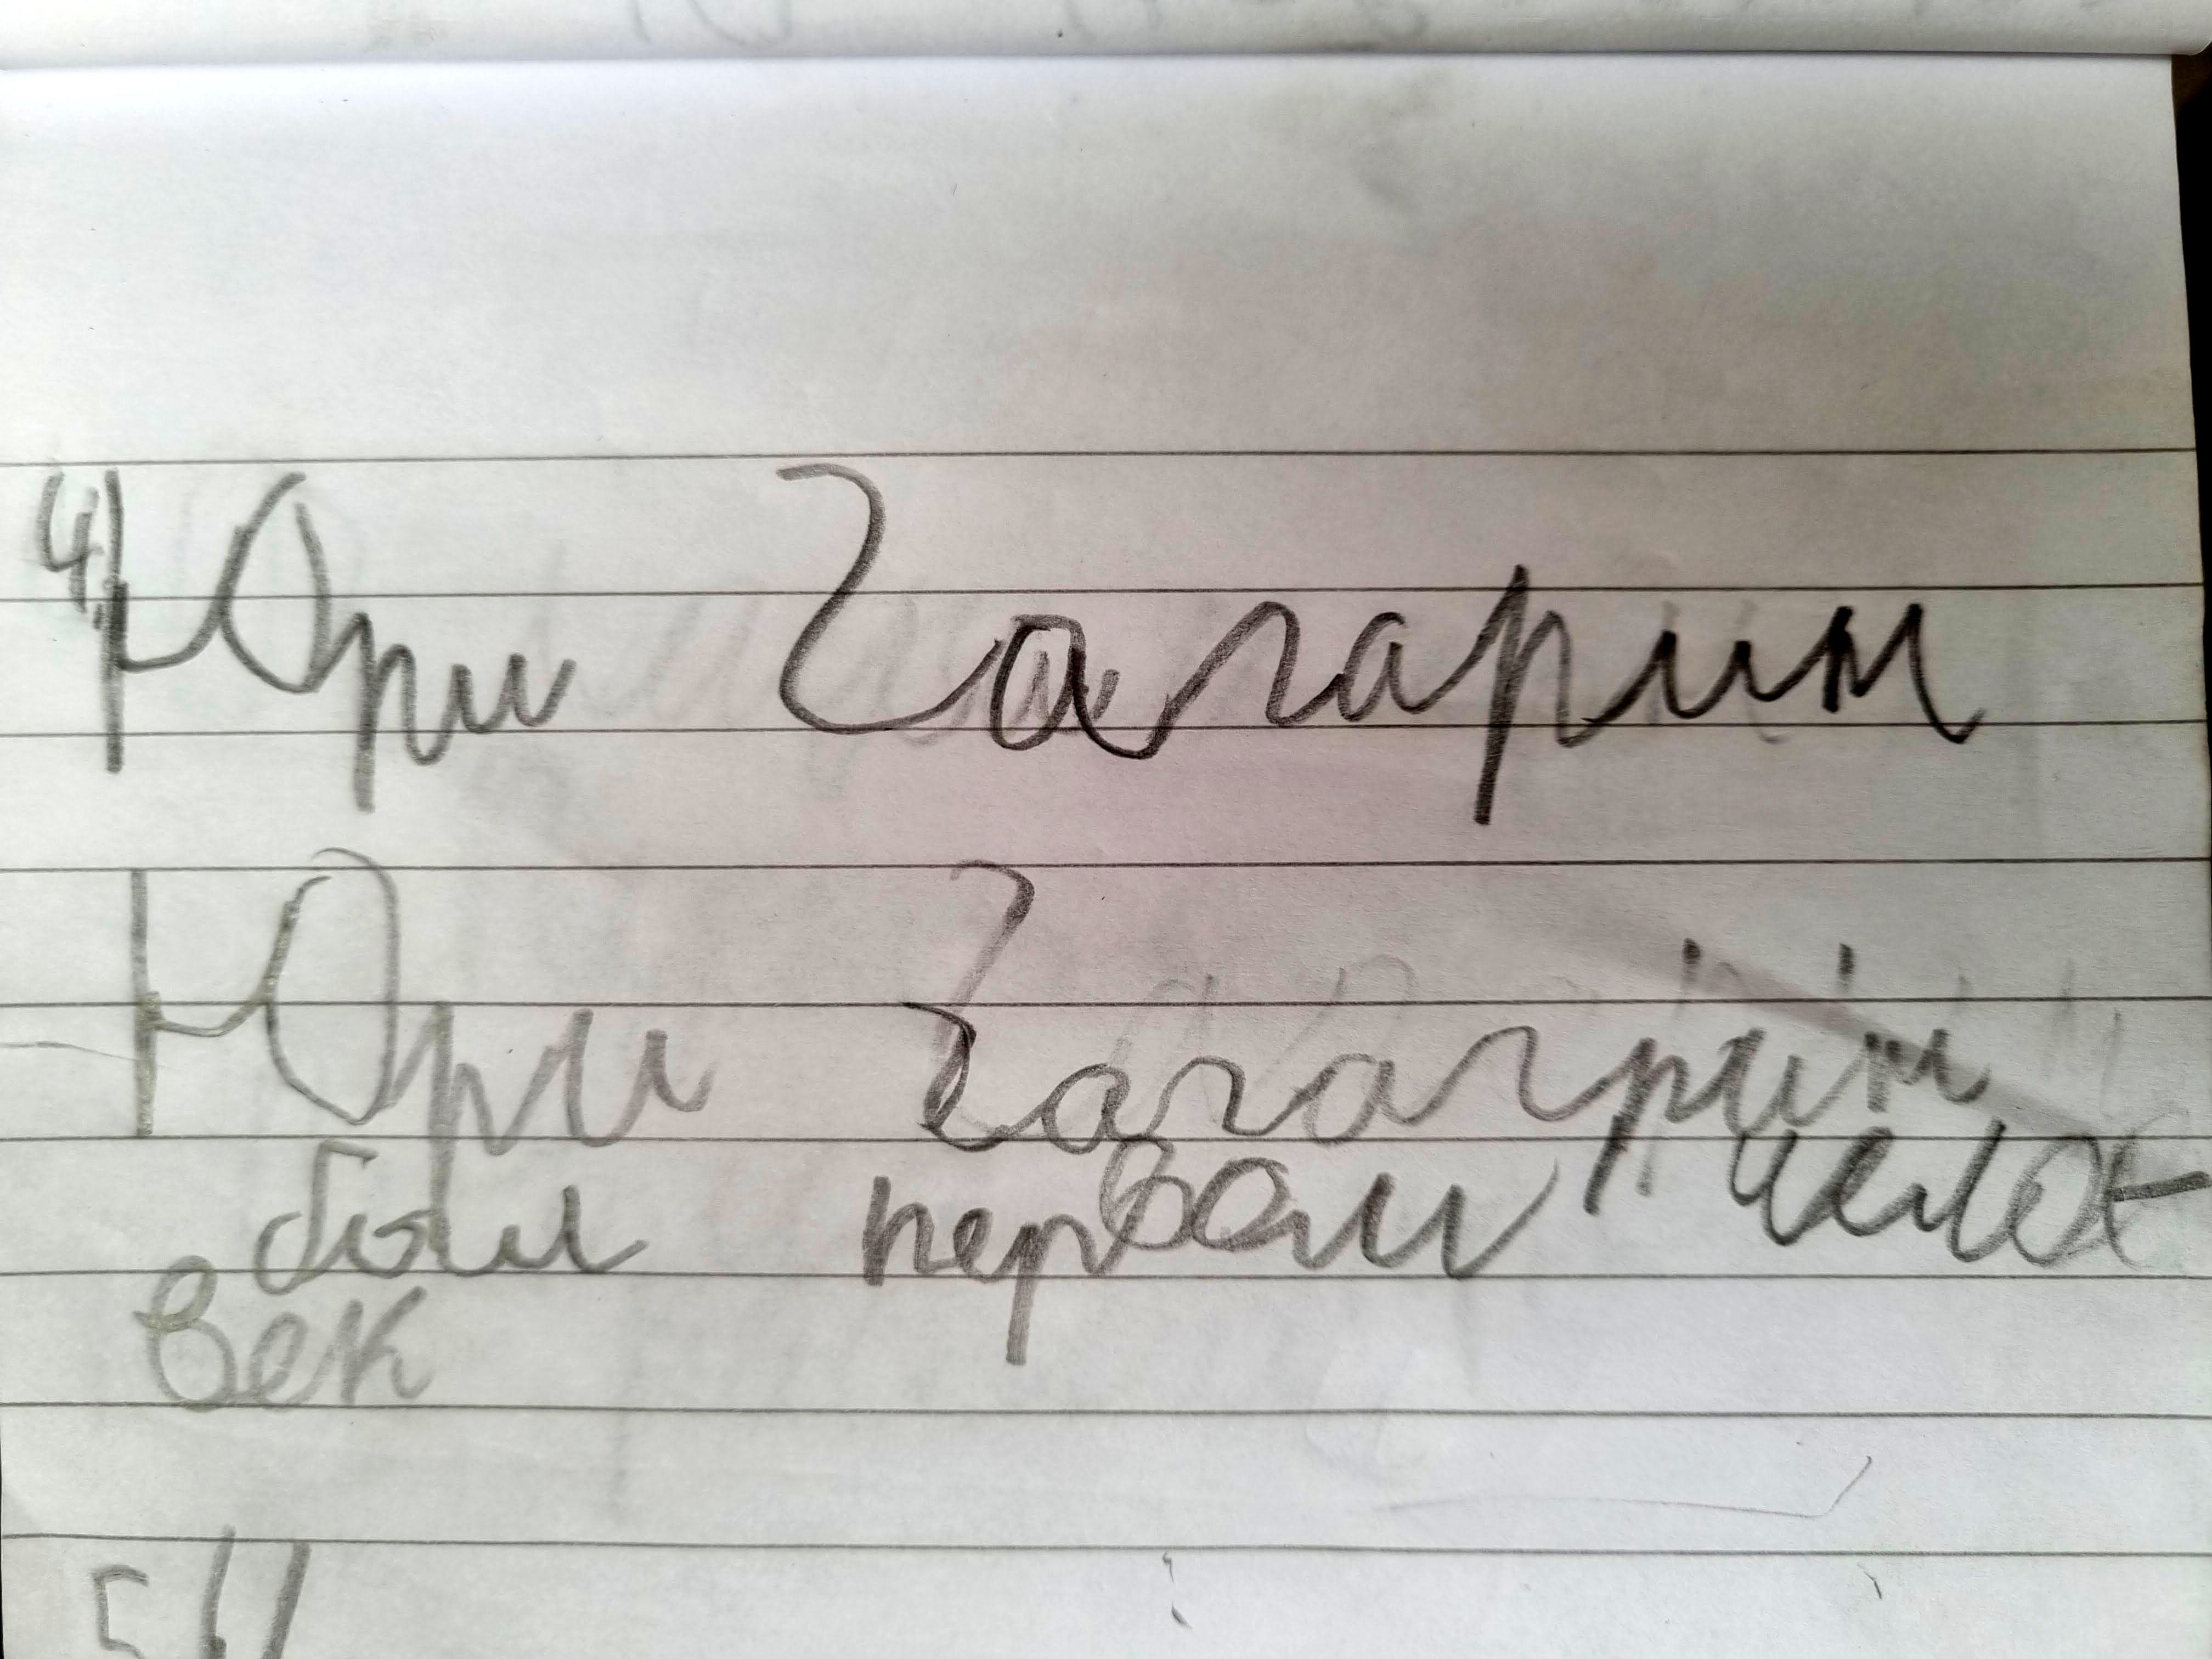 4) Юри Гагарин
Юри Гагарин
бол первои челов-
век
5